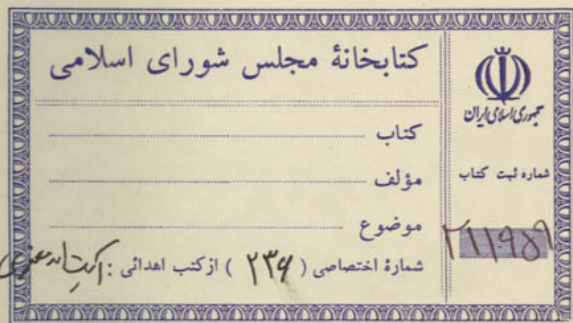 کتابخانهٔ مجلس شورای اسلامی
کتاب
مؤلف
موضوع
شمارهٔ اختصاصی ( ۲۳۶ ) از کتب اهدائی :
جمهوری اسلامی ایران
شماره ثبت کتاب
۲۱۱۹۵۹